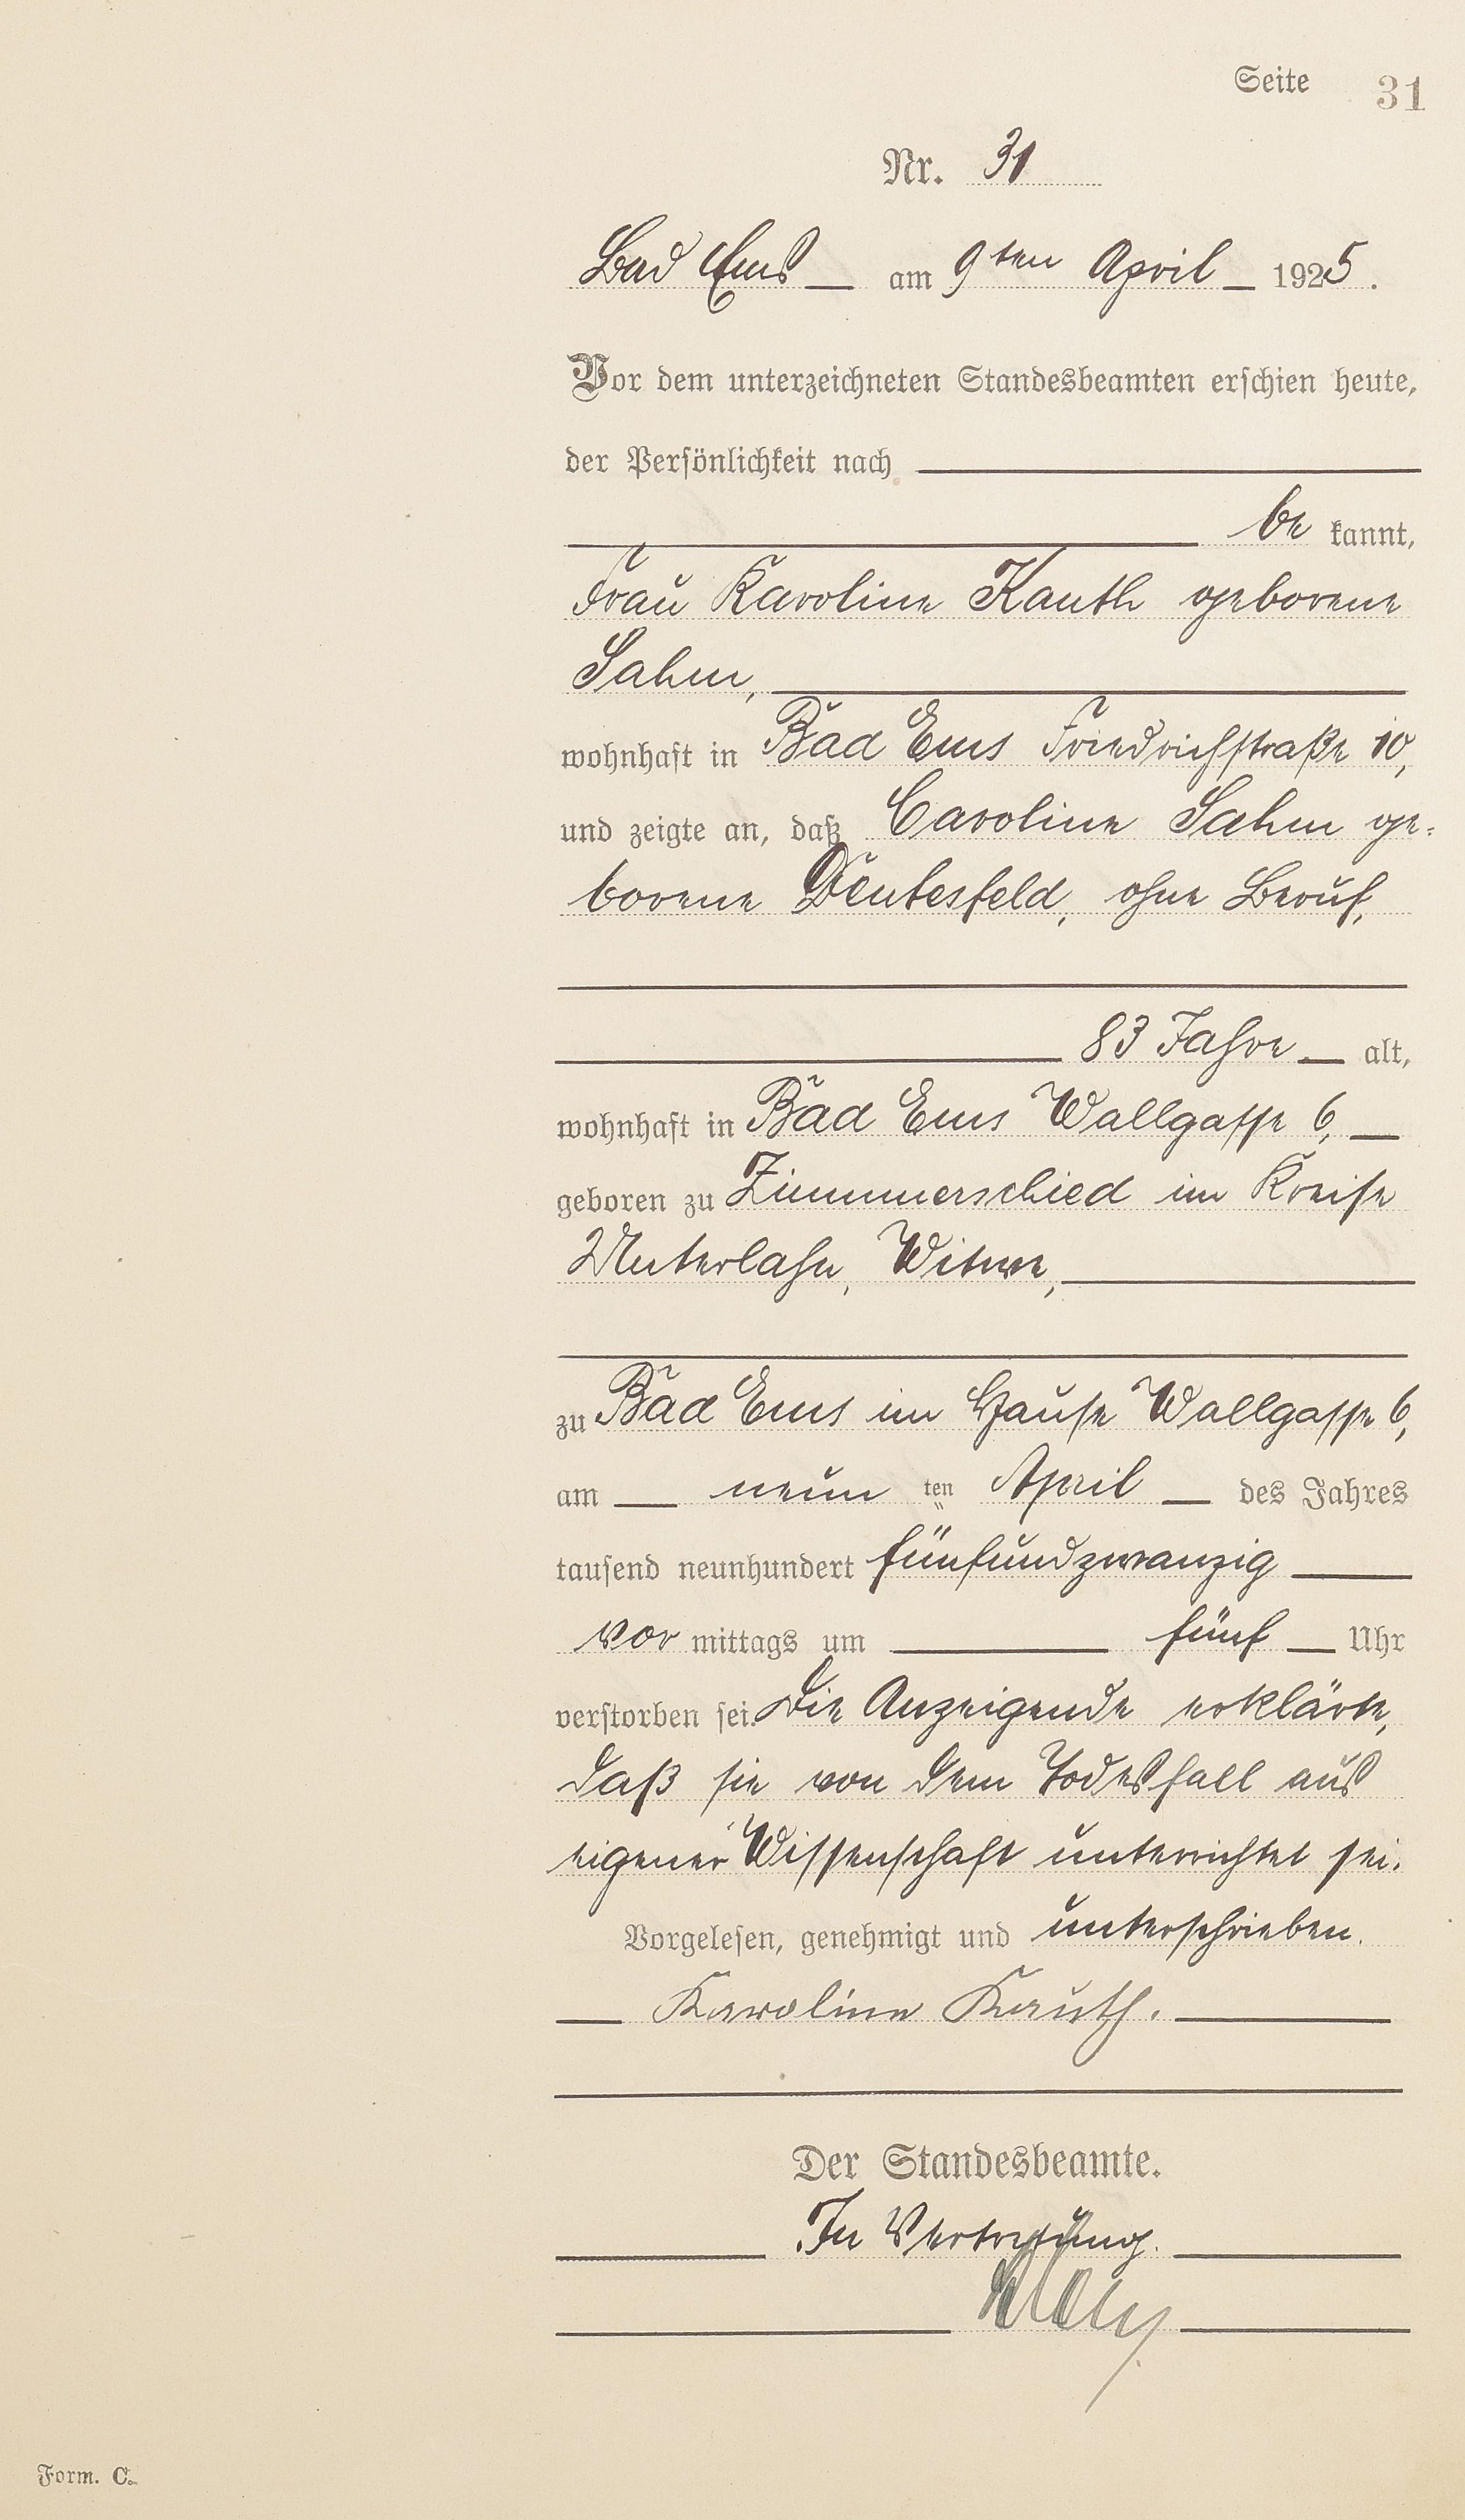 Seite 31
Nr. 31
Bad Ems am 9ten April 1925.
Vor dem unterzeichneten Standesbeamten erschien heute,
der Persönlichkeit nach
be kannt,
Frau Karoline Kauth geborene
Sahm,
wohnhaft in Bad Ems Friedrichstraße 10,
und zeigte an, daß Caroline Sahm ge-
borene Deutesfeld, ohne Beruf,
83 Jahre alt,
wohnhaft in Bad Ems Wallgasse 6,
geboren zu Zimmerschied im Kreise
Unterlahn, Witwe,
zu Bad Ems im Hause Wallgasse 6,
am neun ten April des Jahres
tausend neunhundert fünfundzwanzig
vor mittags um fünf Uhr
verstorben sei. Die Anzeigende erklärte,
daß sie von dem Todesfall aus
eigener Wissenschaft unterrichtet sei.
Vorgelesen, genehmigt und unterschrieben.
Karoline Kauth.
Der Standesbeamte.
In Vertretung.
Form. C.